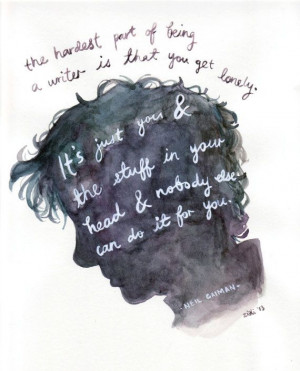 the hardest part of being
a writer is that you get lonely.
It's just you &
the stuff in your
head & nobody else
can do it for you.
- NEIL GAIMAN -